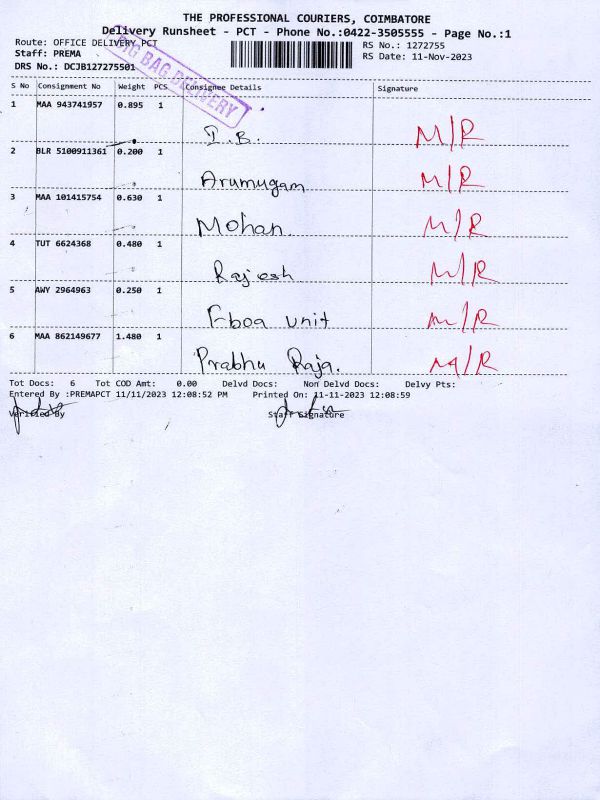 THE PROFESSIONAL COURIERS, COIMBATORE
Delivery Runsheet - PCT - Phone No.:0422-3505555 - Page No.:1
Route: OFFICE DELIVERY PCT
Staff: PREMA
DRS No.: DCJB127275501
RS No.: 1272755
RS Date: 11-Nov-2023
BIG BAG DELIVERY
S No Consignment No Weight PCS Consignee Details Signature
1 MAA 943741957 0.895 1
I.B. M/R
2 BLR 5100911361 0.200 1
Arumugam M/R
3 MAA 101415754 0.630 1
Mohan M/R
4 TUT 6624368 0.480 1
Rajesh M/R
5 AWY 2964963 0.250 1
Fboa unit M/R
6 MAA 862149677 1.480 1
Prabhu Raja. M/R
Tot Docs: 6 Tot COD Amt: 0.00 Delvd Docs: Non Delvd Docs: Delvy Pts:
Entered By :PREMAPCT 11/11/2023 12:08:52 PM Printed On: 11-11-2023 12:08:59
Verified By Staff Signature